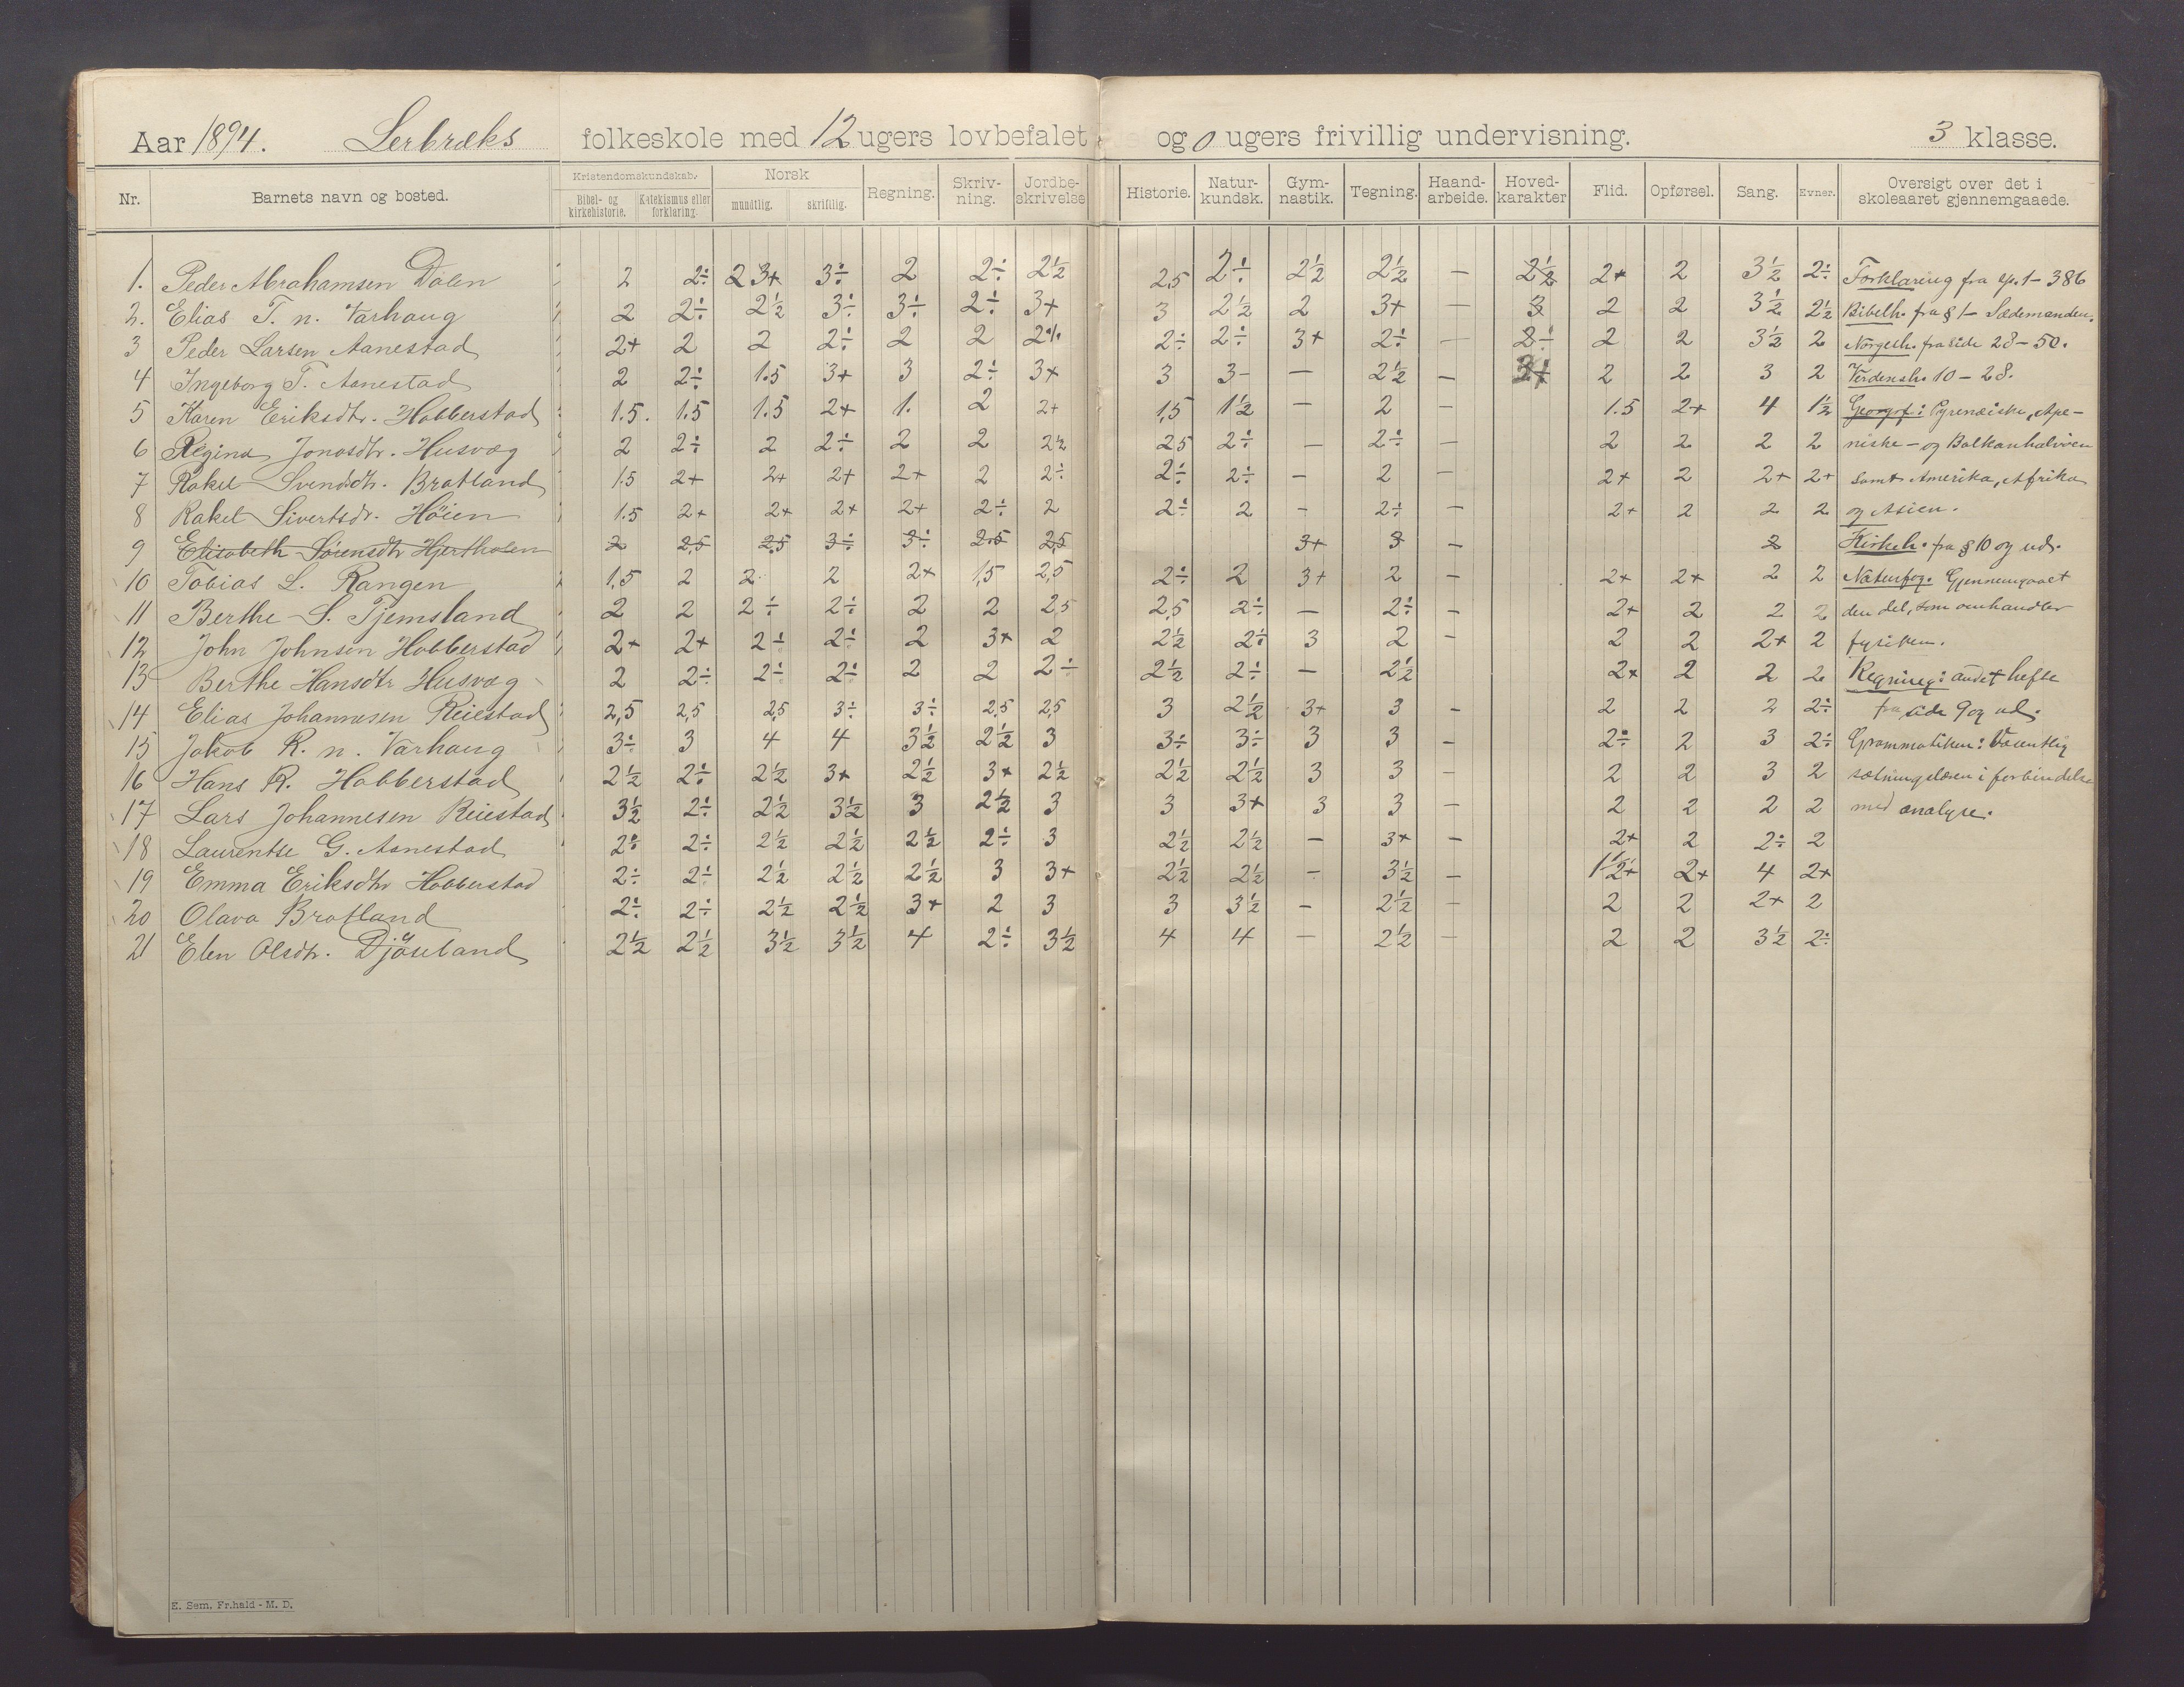 Aar 1894. Lerbræks folkeskole med 12 ugers lovbefalet og 0 ugers frivillig undervisning. 3 klasse.
Nr. Barnets navn og bosted. Kristendomskundskab. Bibel- og kirkehistorie. Katekismus eller forklaring. Norsk mundtlig. skriftlig. Regning. Skriv-ning. Jordbe-skrivelse Historie. Natur-kundsk. Gym-nastik. Tegning. Haand-arbeide. Hoved-karakter Flid. Opførsel. Sang. Evner. Oversigt over det i skoleaaret gjennemgaaede.
1. Peder Abrahamsen Dalen 2 2÷ 2 3+ 3÷ 2 2÷ 2½ 2,5 2÷ 2½ 2½ — 2½ 2+ 2 3½ 2÷ Forklaring fra sp. 1 – 386
2. Elias T. n. Varhaug 2 2÷ 2½ 3÷ 3÷ 2÷ 3+ 3 2½ 2 3+ — 3 2 2 3½ 2½ Bibelh. fra § 1 – Sædemanden.
3 Peder Larsen Aanestad 2+ 2 2 2÷ 2 2 2% 2÷ 2÷ 3+ 2÷ — 2÷ 2 2 3½ 2 Norgesh. fra side 28 – 50.
4 Ingeborg T. Aanestad 2 2÷ 1.5 3+ 3 2÷ 3+ 3 3- — 2½ — 2 2 3 2 Verdensh. 10 – 28.
5 Karen Eriksdtr. Hobberstad 1.5. 1.5 1.5 2+ 1. 2 2+ 1,5 1½ — 2 — 1.5 2+ 4 1½ Geogrf: Pyrenæiske, Ape-
6 Regina Jonasdtr. Husvæg 2 2÷ 2 2÷ 2 2 2½ 2,5 2÷ — 2÷ — 2 2 2 2 niske – og Balkanhalvöen
7 Rakel Svendsdtr. Bratland 1.5 2+ 2+ 2+ 2+ 2 2÷ 2÷ 2÷ — 2 — 2+ 2 2+ 2+ samt Amerika, Afrika
8 Rakel Sivertsdr. Höien 1.5 2+ 2+ 2+ 2+ 2÷ 2 2÷ 2 — 2÷ — 2+ 2 2 2 og Asien.
9 Elisabeth Sörensdtr Hjertholen 2 2,5 2,5 3÷ 3÷ 2,5 2,5 3+ 3 — 2 Kirkeh. fra § 10 og ud.
10 Tobias L. Rangen 1,5 2 2 2 2+ 1,5 2,5 2÷ 2 3+ 2 — 2+ 2+ 2 2 Naturfag. Gjennemgaaet
11 Berthe S. Tjemsland 2 2 2÷ 2÷ 2 2 2,5 2,5 2÷ — 2÷ — 2+ 2 2 2 den del, som omhandler
12 John Johnsen Hobberstad 2+ 2+ 2÷ 2÷ 2 3+ 2 2½ 2÷ 3 2 — 2 2 2+ 2 fysiken.
13 Berthe Hansdtr Husvæg 2 2÷ 2÷ 2÷ 2 2 2÷ 2½ 2÷ — 2½ 2+ 2 2 2 Regning: andet hefte
14 Elias Johannesen Reiestad 2,5 2,5 2,5 3÷ 3÷ 2,5 2,5 3 2½ 3+ 3 — 2 2 2 2÷ fra side 9 og ud.
15 Jakob R. n. Varhaug 3÷ 3 4 4 3½ 2½ 3 3÷ 3÷ 3 3 — 2÷ 2 3 2÷ Grammatiken: Væsentlig
16 Hans R. Hobberstad 2½ 2÷ 2½ 3+ 2½ 3+ 2½ 2½ 2½ 3 3 — 2 2 3 2 sætningslæren i forbindelse
17 Lars Johannesen Reiestad 3½ 2÷ 2½ 3½ 3 2½ 3 3 3+ 3 3 — 2 2 2 2 med analyse.
18 Laurentse G. Aanestad 2÷ 2÷ 2½ 2½ 2½ 2÷ 3 2½ 2½ — 3+ — 2+ 2 2÷ 2
19 Emma Eriksdtr Hobberstad 2÷ 2÷ 2½ 2½ 2½ 3 3+ 2½ 2½ — 3½ — 2+ 4 2+
20 Olava Bratland 2÷ 2÷ 2½ 2½ 3+ 2 3 3 3½ — 2½ — 2 2 2+ 2
21 Elen Olsdtr. Djöseland 2½ 2½ 3½ 3½ 4 2÷ 3½ 4 4 — 2½ — 2 2 3½ 2÷
E. Sem. Fr.hald - M. D.